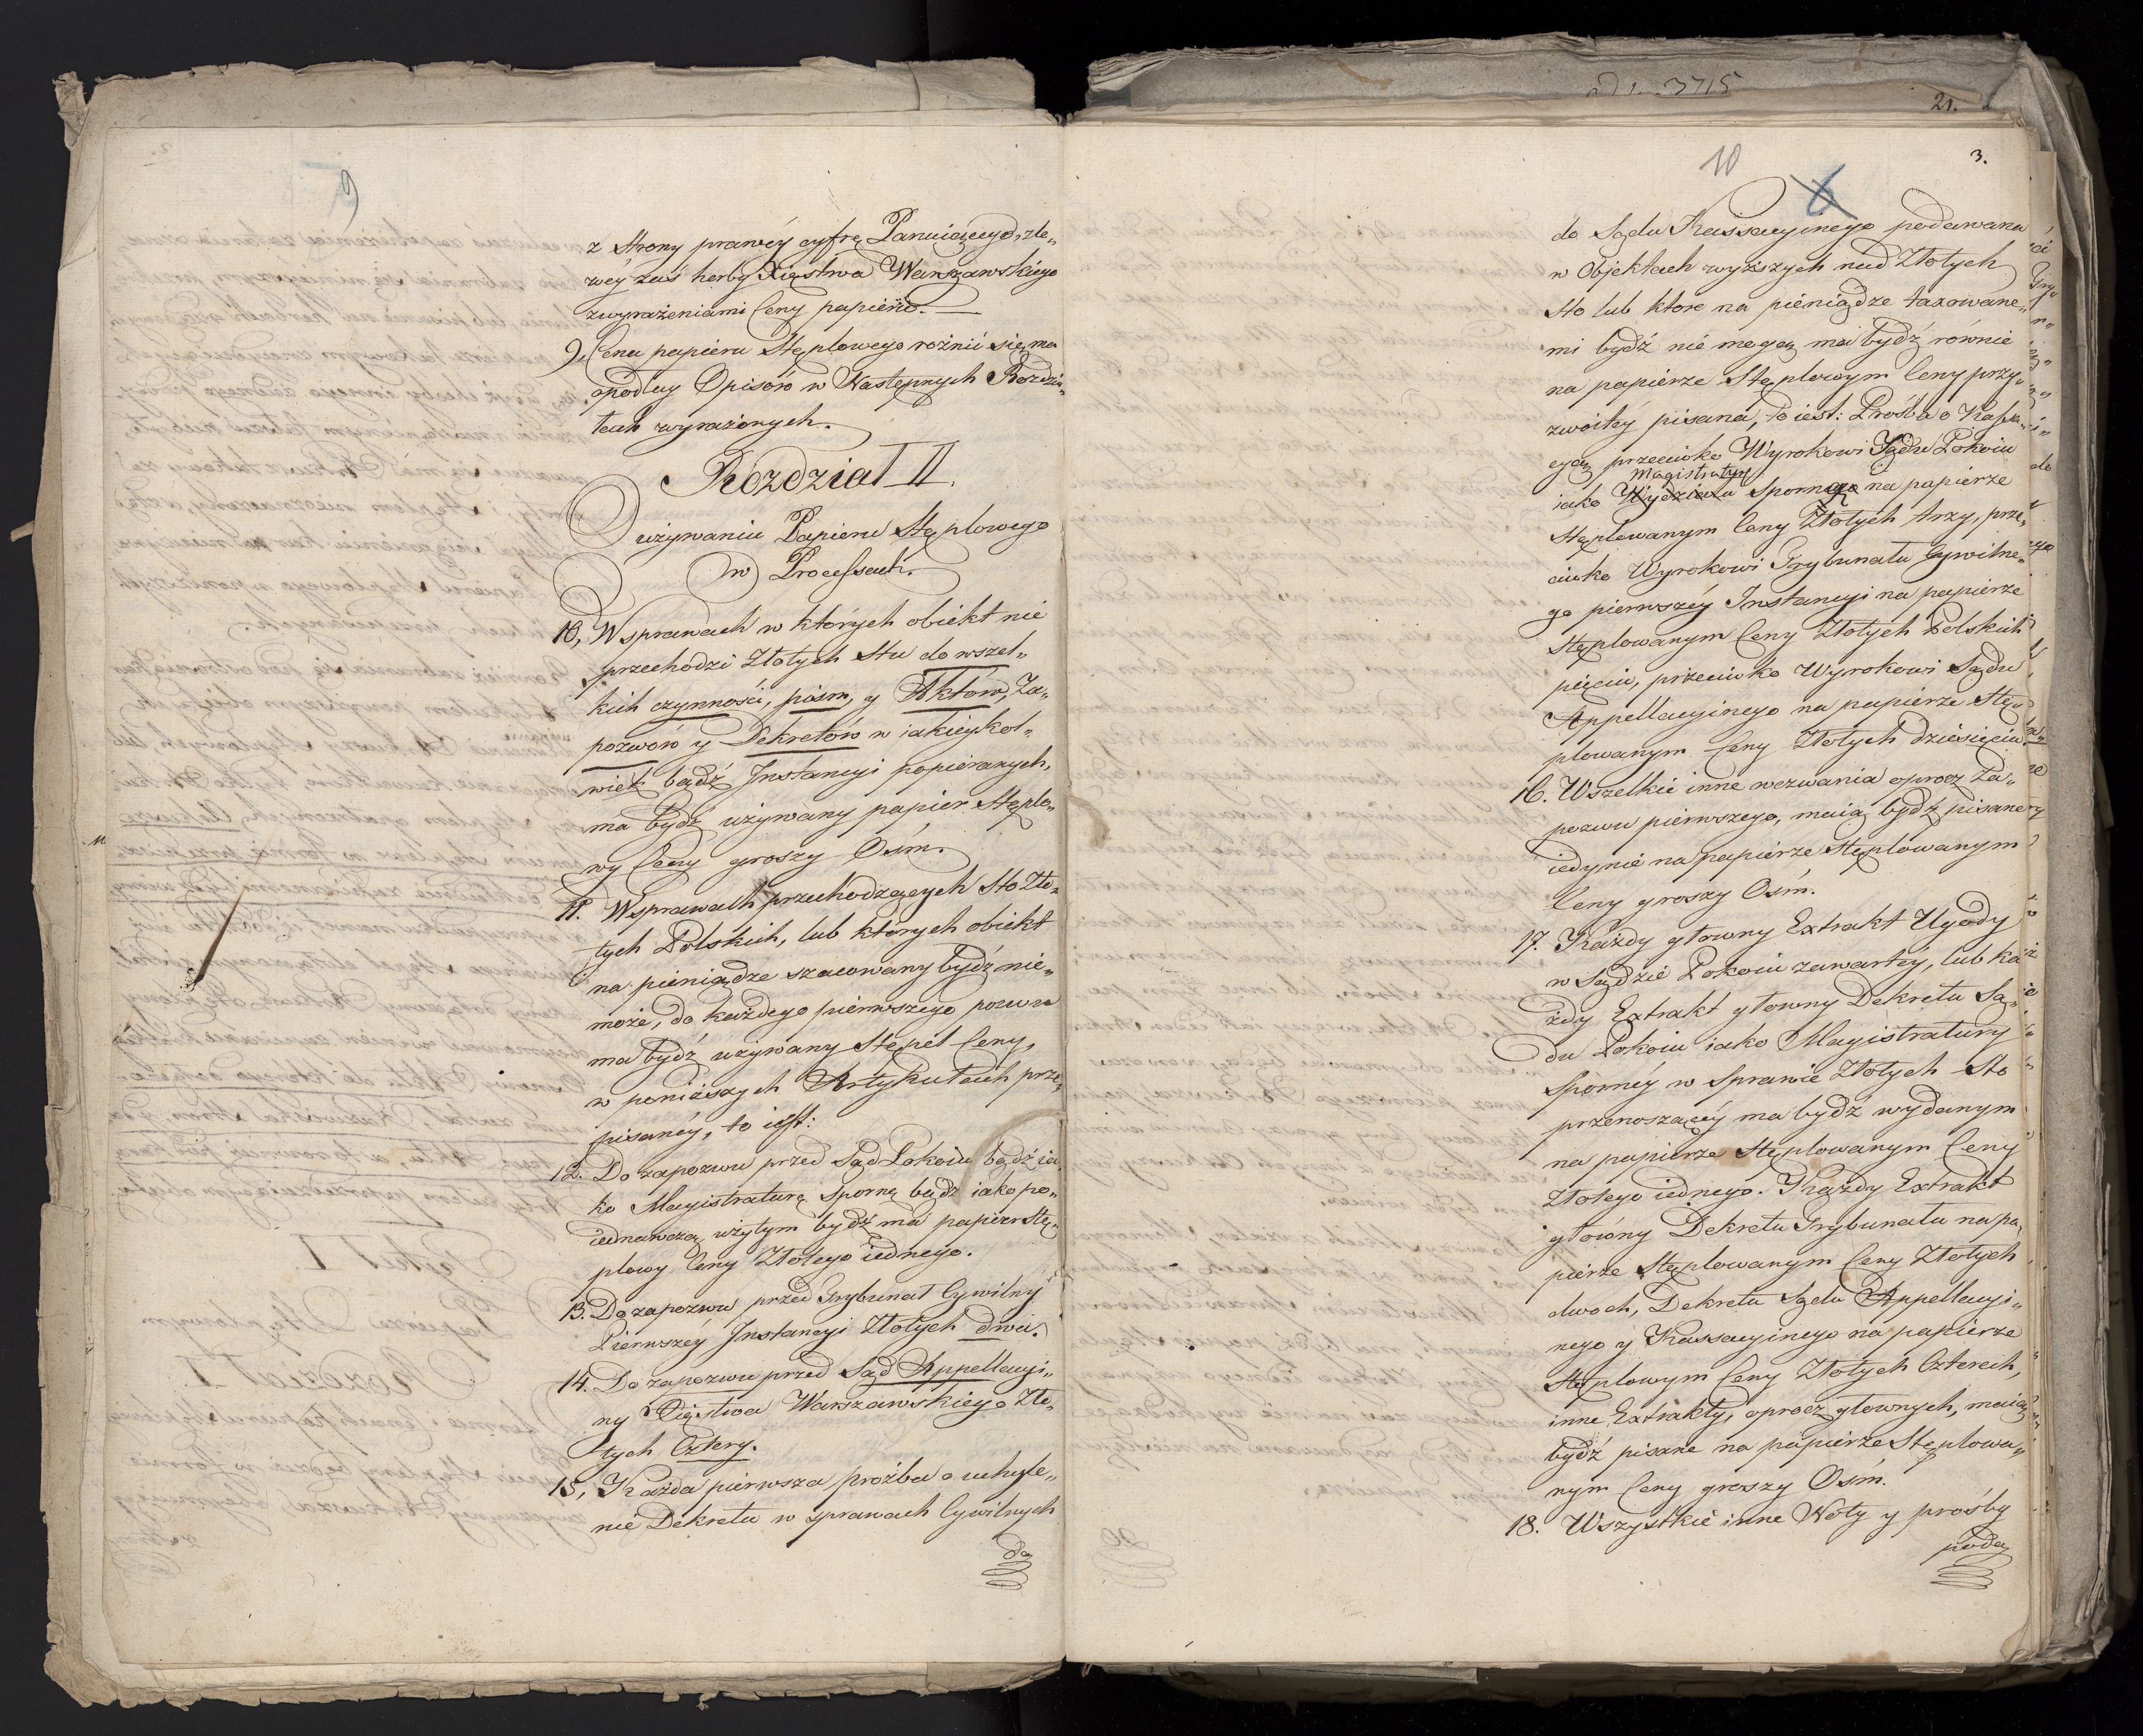 9
z Strony prawéy cyfrę Panuiącego, z le„
wéy zaś herby Xięstwa Warszawskiego
z wyrażeniami Ceny papieru.
9, Cena papieru Stęplowego roźnić się ma
podług Opisów w Następnych Rozdzia„
łach wyrażonych.
Rozdział II.
O używaniu Papieru Stęplowego
w Processach.
10, W sprawach w których obiekt nie
przechodzi Złotych Stu do wszel„
kich czynności, pism, y Aktów, Za„
pozwów y Dekretów w iakieykol„
wiek bądź Instancyi popieranych,
ma bydź używany papier Stęplo„
wy Ceny groszy Ośm.
11. W sprawach przechodzących Sto Zło„
tych Polskich, lub których obiekt
na pieniądze szacowany bydź nie„
może, do każdego pierwszego pozwu
ma bydź używany Stępel Ceny,
w poniższych Artykułach prze„
pisanéy, to iest:
12. Do zapozwu przed Sąd Pokoiu bądź ia„
ko Magistraturę Sporną bądź iako po„
iednawczą użytym bydź ma papier Stę„
plowy Ceny Złotego iednego.
13. Do zapozwu przed Trybunał Cywilny
Pierwszéy Instancyi Złotych dwa.
14. Do zapozwu przed Sąd Appellacyi„
ny Xięstwa Warszawskiego Zło„
tych Cztery.
15, Każda pierwsza proźba o uchyle„
nie Dekretu w sprawach Cywilnych
do
3715
21.
3.
10
6
do Sądu Kassacyinego podawana
w Objektach wyższych nad Złotych
Sto lub ktore na pieniądze taxowane„
mi bydź nie mogą ma bydź równie
na papierze Stęplowym Ceny przy„
zwoitéy pisana, to iest: Prośba o Kassa„
cyą przeciwko Wyrokowi Sądu Pokoiu
Magistratury
iako Wydziału Spornego na papierze
Stęplowanym Ceny Złotych trzy, prze„
ciwko Wyrokowi Trybunału Cywilne„
go pierwszéy Instancyi na papierze
Stęplowanym Ceny Złotych Polskich
pięciu, przeciwko Wyrokowi Sądu
Appellacyinego na papierze Stę„
plowanym Ceny Złotych dziesięciu.
16. Wszelkie inne wezwania oprocz Za„
pozwu pierwszego, maią bydź pisane
iedynie na papierze Stęplowanym
Ceny groszy Ośm.
17. Każdy głowny Extrakt Ugody
w Sądzie Pokoiu zawartéy, lub ka
żdy Extrakt głowny Dekretu Są„
du Pokoiu iako Magistratury
Spornéy w Sprawie Złotych Sto
przenoszącéy ma bydź wydanym
na papierze Stęplowanym Ceny
Złotego iednego. Każdy Extrakt
głowny Dekretu Trybunału na pa„
pierze Stęplowanym Ceny Złotych
dwoch, Dekretu Sądu Appellacyi„
nego y Kassacyinego na papierze
Stęplowym Ceny Złotych Czterech,
inne Extrakty, oprocz głownych, maią
bydź pisane na papierze Stęplowa„
nym Ceny groszy Ośm.
18. Wszystkie inne Noty y prośby
poda